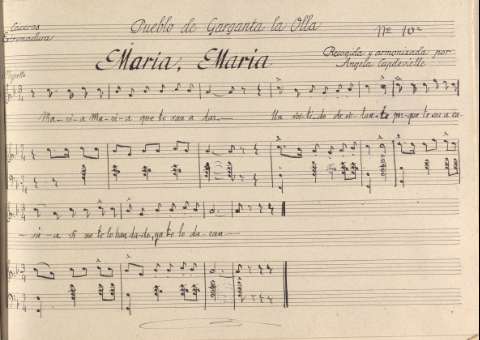 Cáceres
Extremadura
Pueblo de Garganta la Olla
Nº 10º
María, María
Recogida y armonizada por
Angela Capdevielle
Ma-rí-a Ma-rí-a que te van a dar Un ves-ti-do de vo-lan-te por-que te vas a ca-
sí-a si no te lo han da-do, ya te lo da-ran